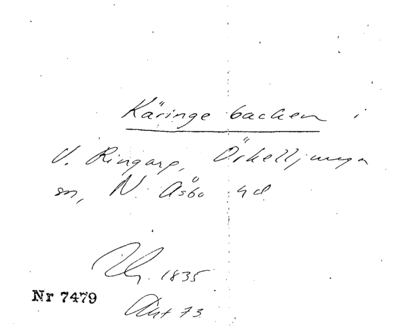 Käringe backen i
V. Ringarp, Örkelljunga
sn, N. Åsbo hd
1835
Nr 7479
Akt 73